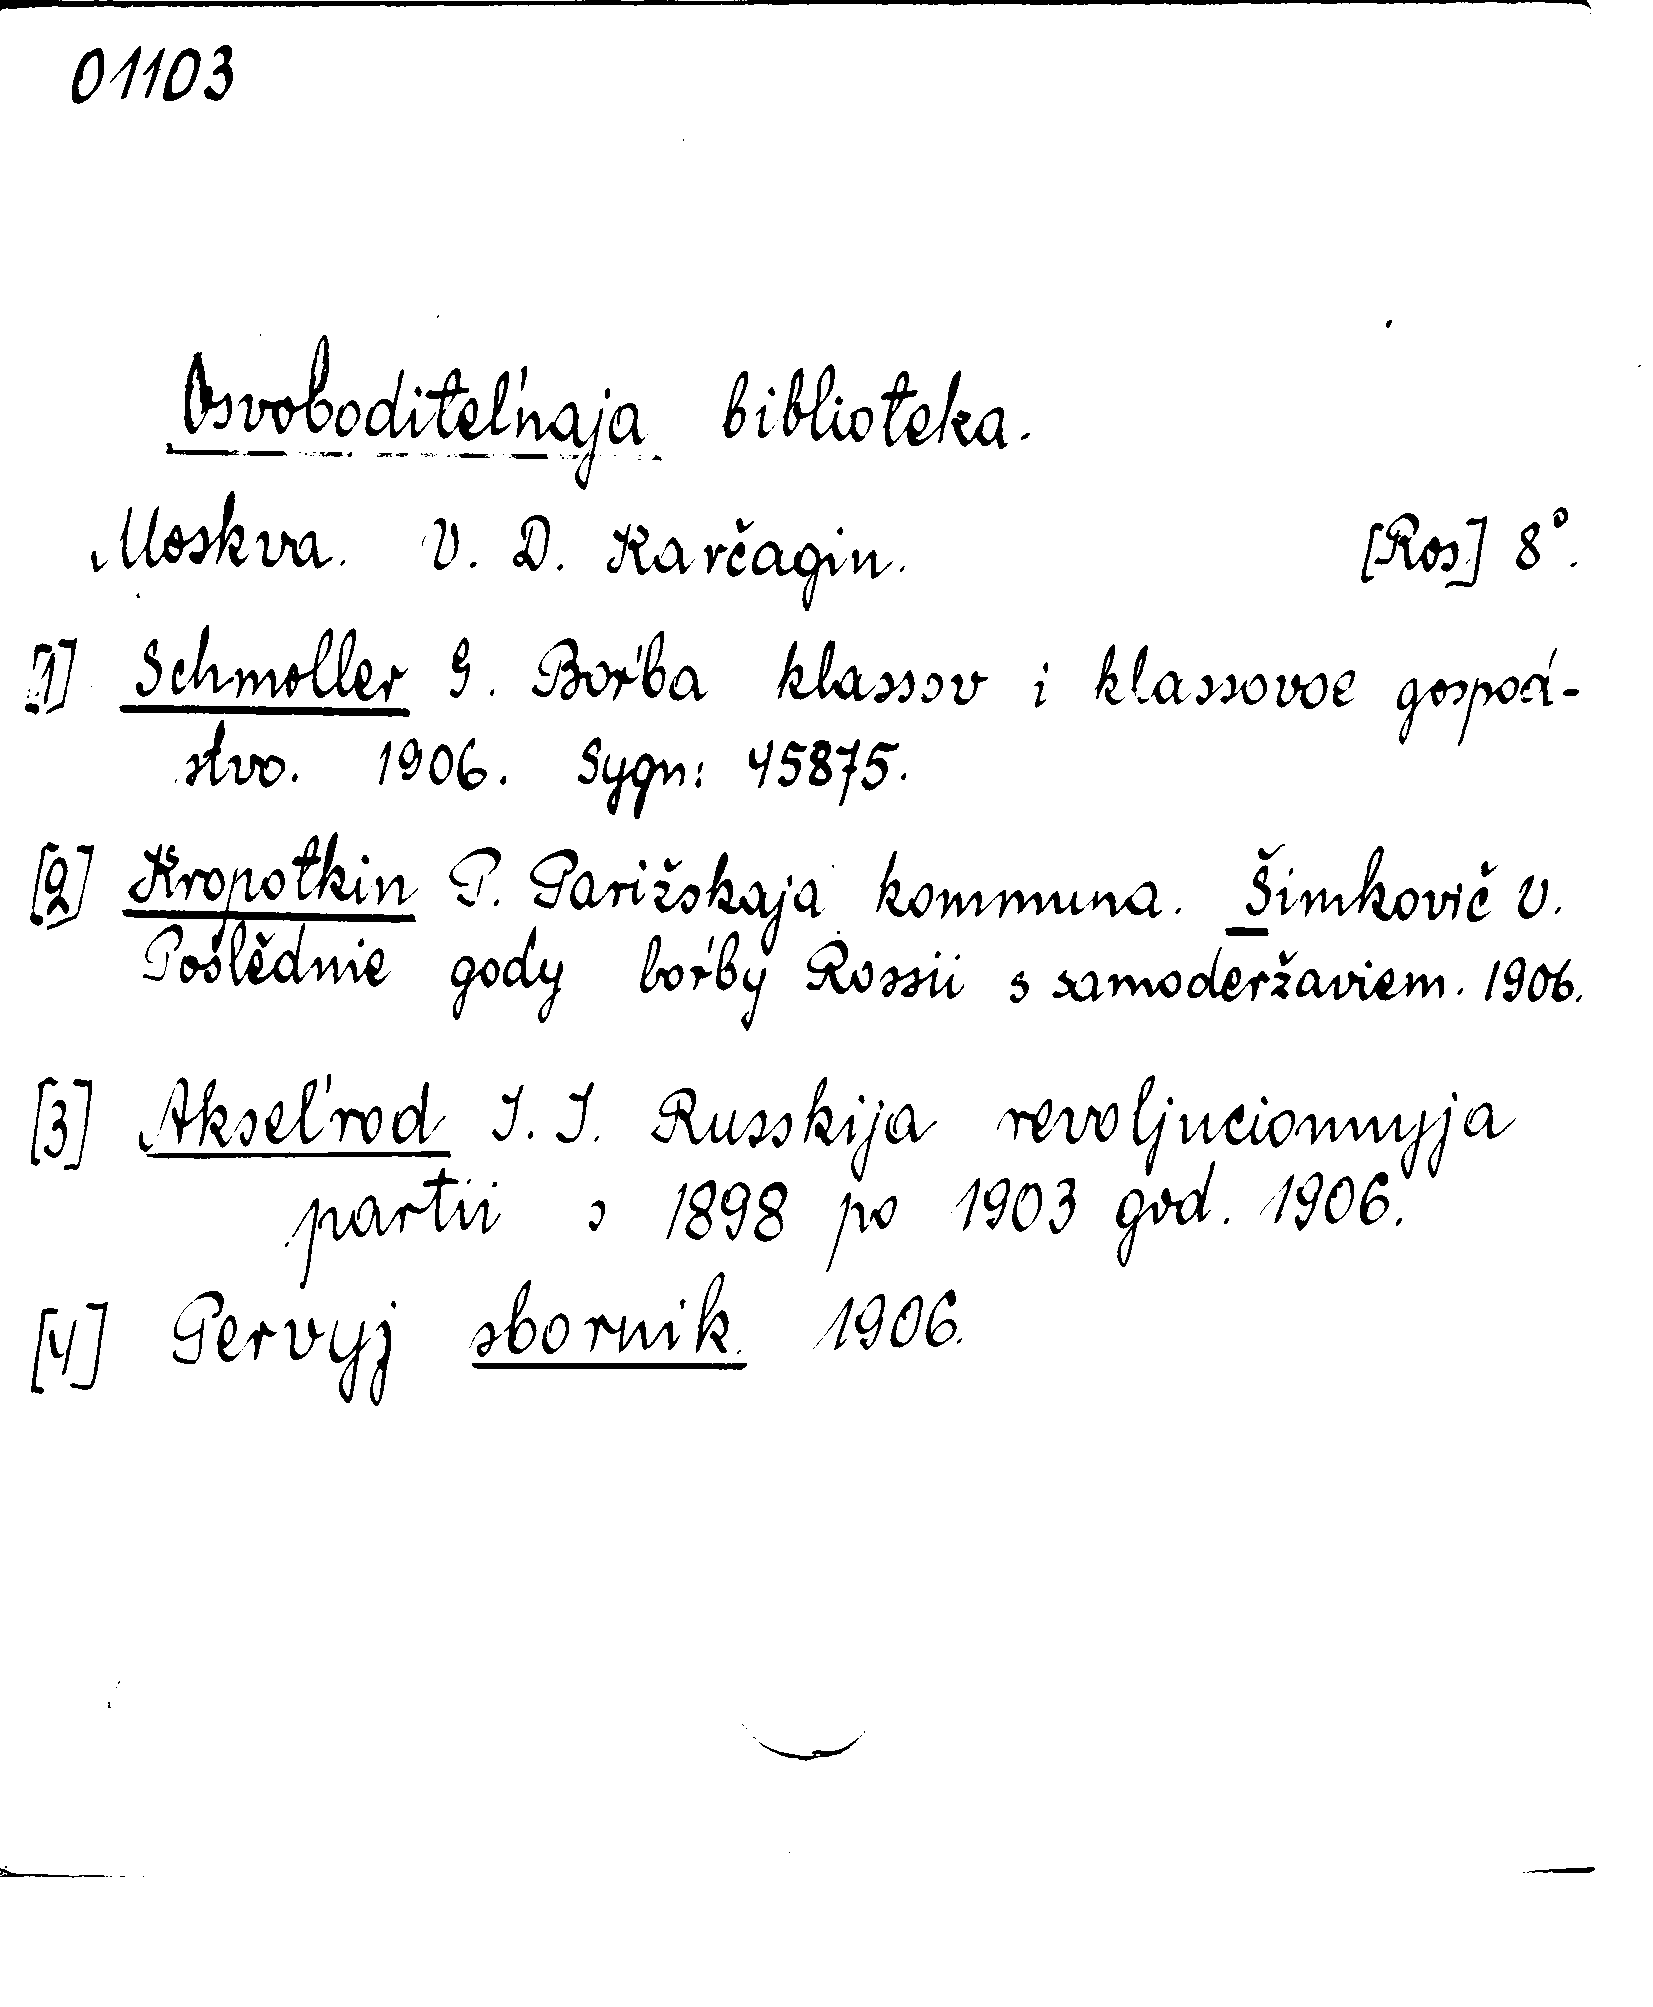 01103
Osvoboditel'naja biblioteka.
Moskva. V. D. Karčagin. [Ros] 8°.
[1] Schmoller G. Bor'ba klassov i klassovoe gospod-
stvo. 1906. Sygn: 45875.
[2] Kropotkin P. Parižskaja kommuna. Šimkovič V.
Poslědnie gody bor'by Rossii s samoderžaviem. 1906.
[3] Aksel'rod I. I. Russkija revoljucionnyja
partii s 1898 po 1903 god. 1906.
[4] Pervyj sbornik. 1906.